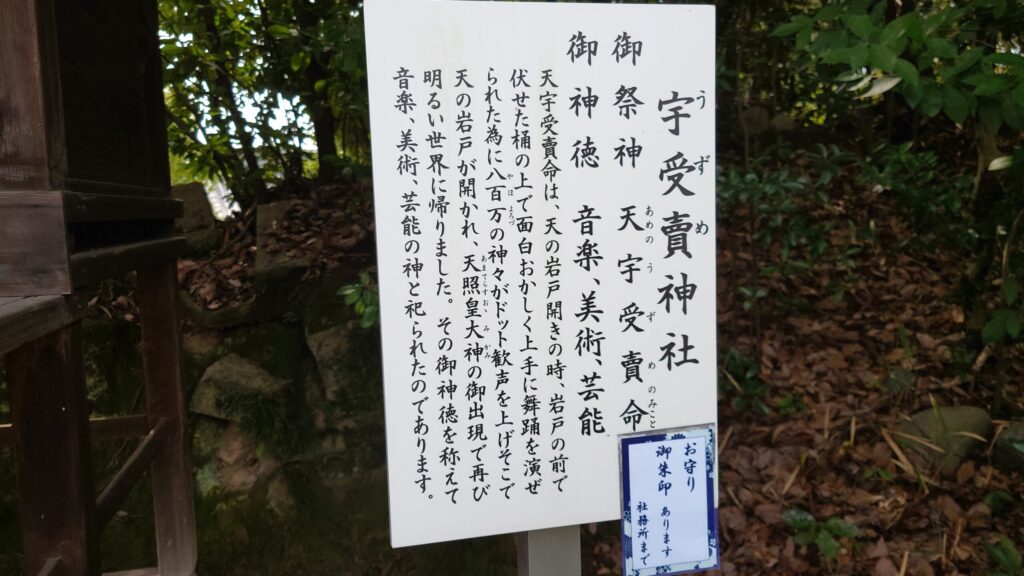 宇受賣神社
うずめ
御祭神 天宇受賣命
あめのうずめのみこと
御神徳 音楽、美術、芸能
天宇受賣命は、天の岩戸開きの時、岩戸の前で
伏せた桶の上で面白おかしく上手に舞踊を演ぜ
られた為に八百万の神々がドット歓声を上げそこで
やほよろづ
天の岩戸が開かれ、天照皇大神の御出現で再び
あまてらすおゝみかみ
明るい世界に帰りました。その御神徳を称えて
音楽、美術、芸能の神と祀られたのであります。
お守り
御朱印 あります
社務所まで